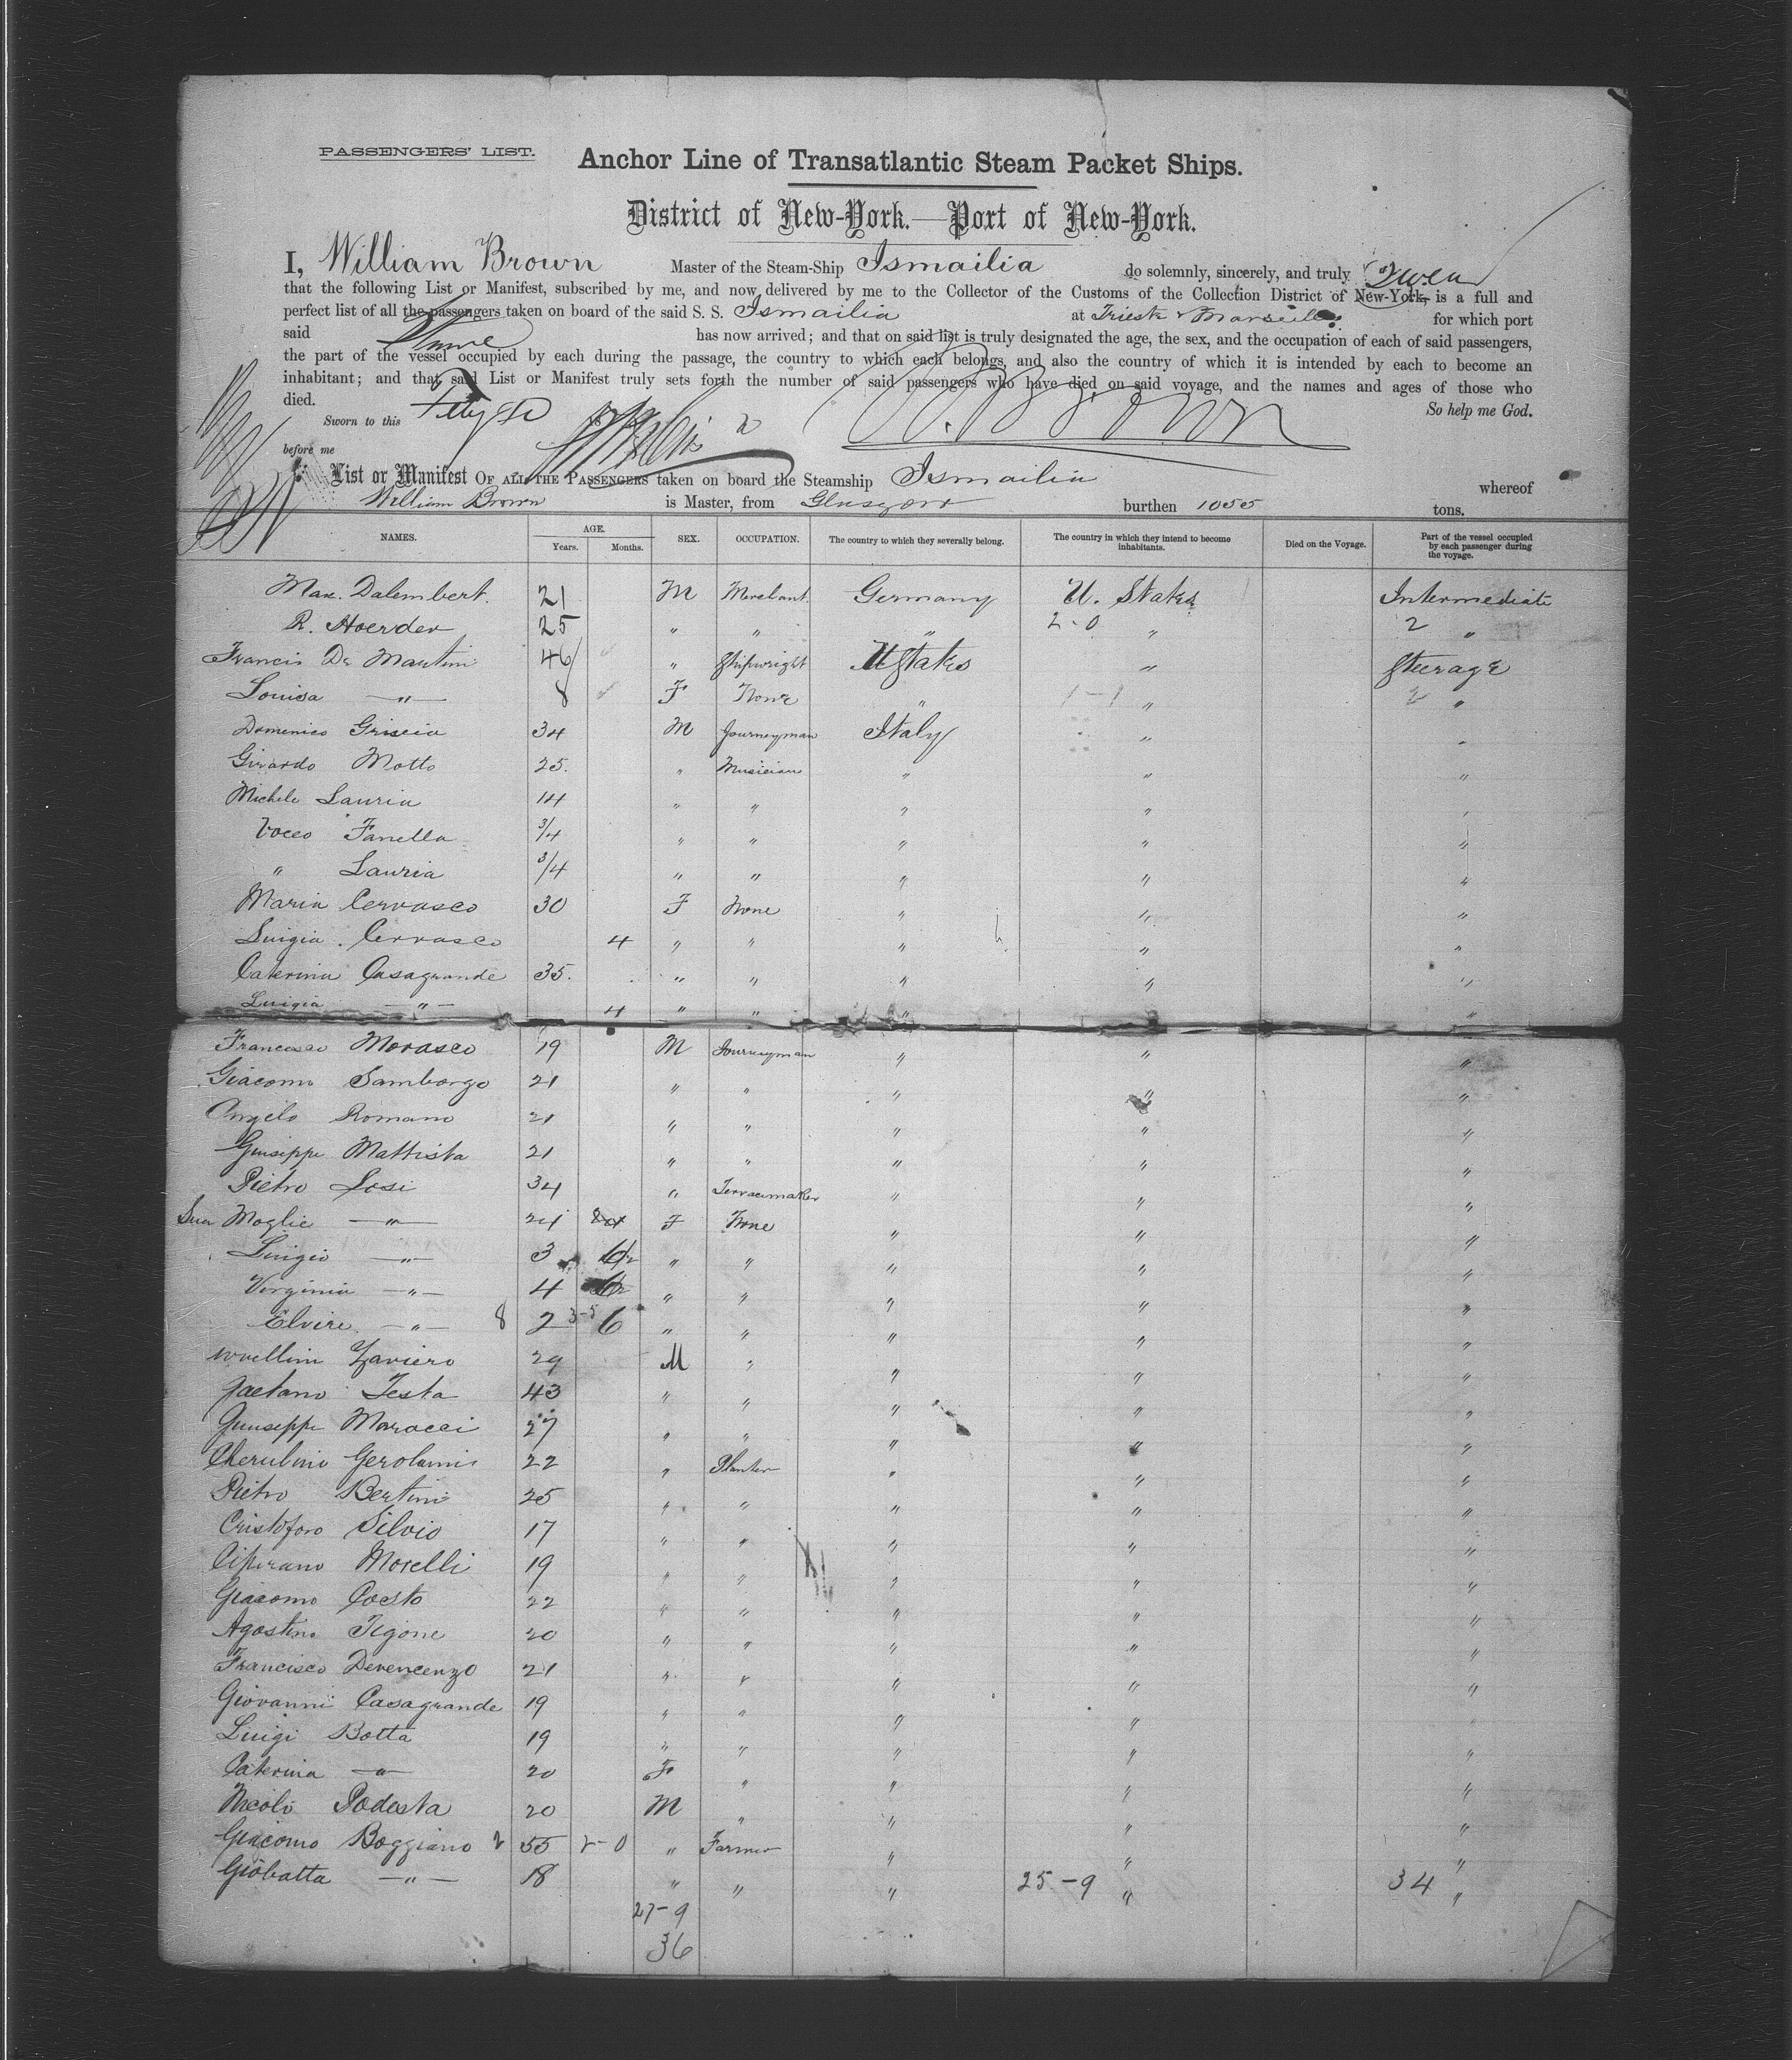 PASSENGERS' LIST.
Anchor Line of Transatlantic Steam Packet Ships.
District of New-York.—Port of New-York.
I, William Brown Master of the Steam-Ship Ismailia do solemnly, sincerely, and truly swear
that the following List or Manifest, subscribed by me, and now delivered by me to the Collector of the Customs of the Collection District of New-York, is a full and
perfect list of all the passengers taken on board of the said S. S. Ismailia at Trieste & Marseilles for which port
said has now arrived; and that on said list is truly designated the age, the sex, and the occupation of each of said passengers,
the part of the vessel occupied by each during the passage, the country to which each belongs, and also the country of which it is intended by each to become an
inhabitant; and that said List or Manifest truly sets forth the number of said passengers who have died on said voyage, and the names and ages of those who
died. So help me God.
Sworn to this W. Brown
before me
List or Manifest OF ALL THE PASSENGERS taken on board the Steamship Ismailia whereof
William Brown is Master, from Glasgow burthen 1055 tons.
NAMES. AGE. Years. Months. SEX. OCCUPATION. The country to which they severally belong. The country in which they intend to become inhabitants. Died on the Voyage. Part of the vessel occupied by each passenger during the voyage.
Max. Dalembert. 21 M Merchant Germany U. States Intermediate
R. Hoerder 25 " " " 2-0 " 2 "
Francis De Martini 46 " Shipwright U States " Steerage
Louisa —"— 8 F None " 1-1 " 2 "
Domenico Griscia 34 M Journeyman Italy " "
Girardo Motto 25. " Musician " " "
Michele Lauria 14 " " " " "
Rocco Fanella 3/4 " " " " "
" Lauria 3/4 " " " " "
Maria Cervasco 30 F None " " "
Luigia. Cervasco 4 " " " " "
Caterina Casagrande 35. " " " " "
Luigia —"— 4 " " " " "
Francesco Morasco 19 M Journeyman " " "
Giacomo Samborgo 21 " " " " "
Angelo Romano 21 " " " " "
Giuseppe Mattista 21 " " " " "
Pietro Losi 34 " Terracemaker " " "
Sua Moglie —"— 24 F None " " "
Luigio —"— 3 " " " " "
Virginia —"— 4 " " " " "
Elvire —"— 8 2 3-5 6 " " " " "
Zaviero 29 M " " " "
Gaetano Testa 43 " " " " "
Giuseppe Maracci 27 " " " " "
Cherubino Gerolamis 22 " Planter " " "
Pietro Bertini 25 " " " " "
Cristoforo Silvio 17 " " " " "
Cipirano Morelli 19 " " " " "
Giacomo Coesto 22 " " " " "
Agostino Tigone 20 " " " " "
Francisco Devencenzo 21 " " " " "
Giovanni Casagrande 19 " " " " "
Luigi Botta 19 " " " " "
Caterina —"— 20 F " " " "
Nicolo Podesta 20 M " " " "
Giacomo Boggiano 2 55 2-0 " Farmer " " "
Giobatta —"— 18 " " " 25-9 " 34 "
27-9
36